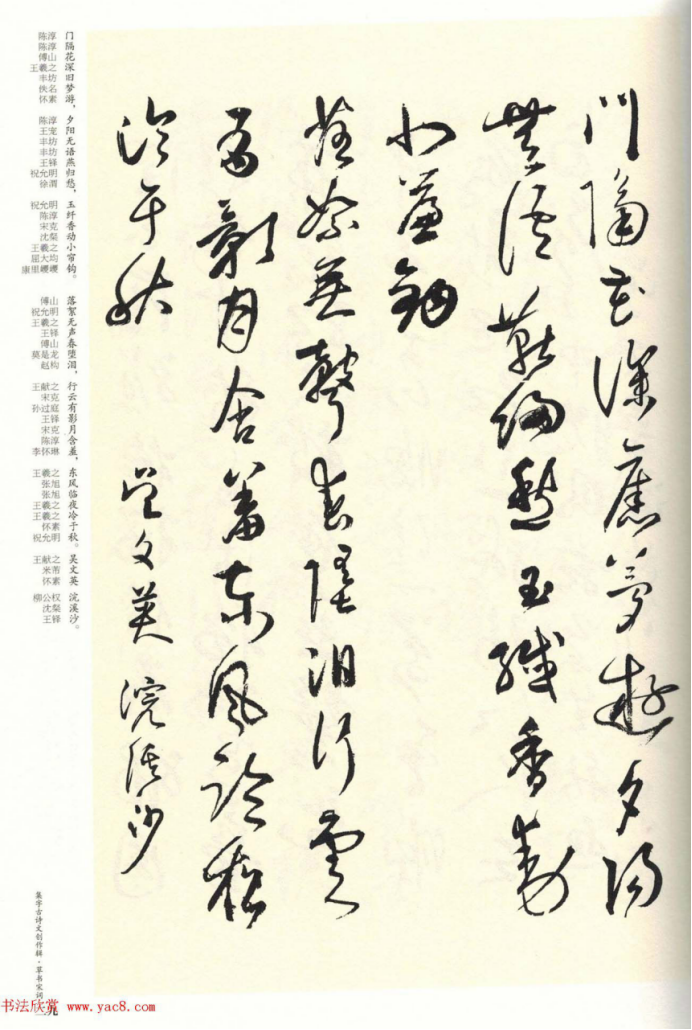 門隔花深舊夢遊夕陽
無語燕歸愁玉纖香動
小簾鉤
落絮無聲春墮淚行雲
有影月含羞東風臨夜
冷于秋 吳文英 浣溪沙
门隔花深旧梦游，夕阳无语燕归愁，玉纤香动小帘钩。落絮无声春堕泪，行云有影月含羞，东风临夜冷于秋。吴文英 浣溪沙。
陈淳 陈淳 傅山 王羲之 丰坊 佚名 怀素 陈淳 王宠 丰坊 丰坊 王铎 祝允明 徐渭 祝允明 陈淳 宋克 沈粲 王羲之 屈大均 康里巎巎 傅山 祝允明 王羲之 王铎 傅山 莫是龙 赵构 王献之 宋克 孙过庭 王铎 宋克 陈淳 李怀琳 王羲之 张旭 张旭 王羲之 王羲之 怀素 祝允明 王献之 米芾 怀素 柳公权 沈粲 王铎
集字古诗文创作辑·草书宋词
二九
书法欣赏 www.yac8.com